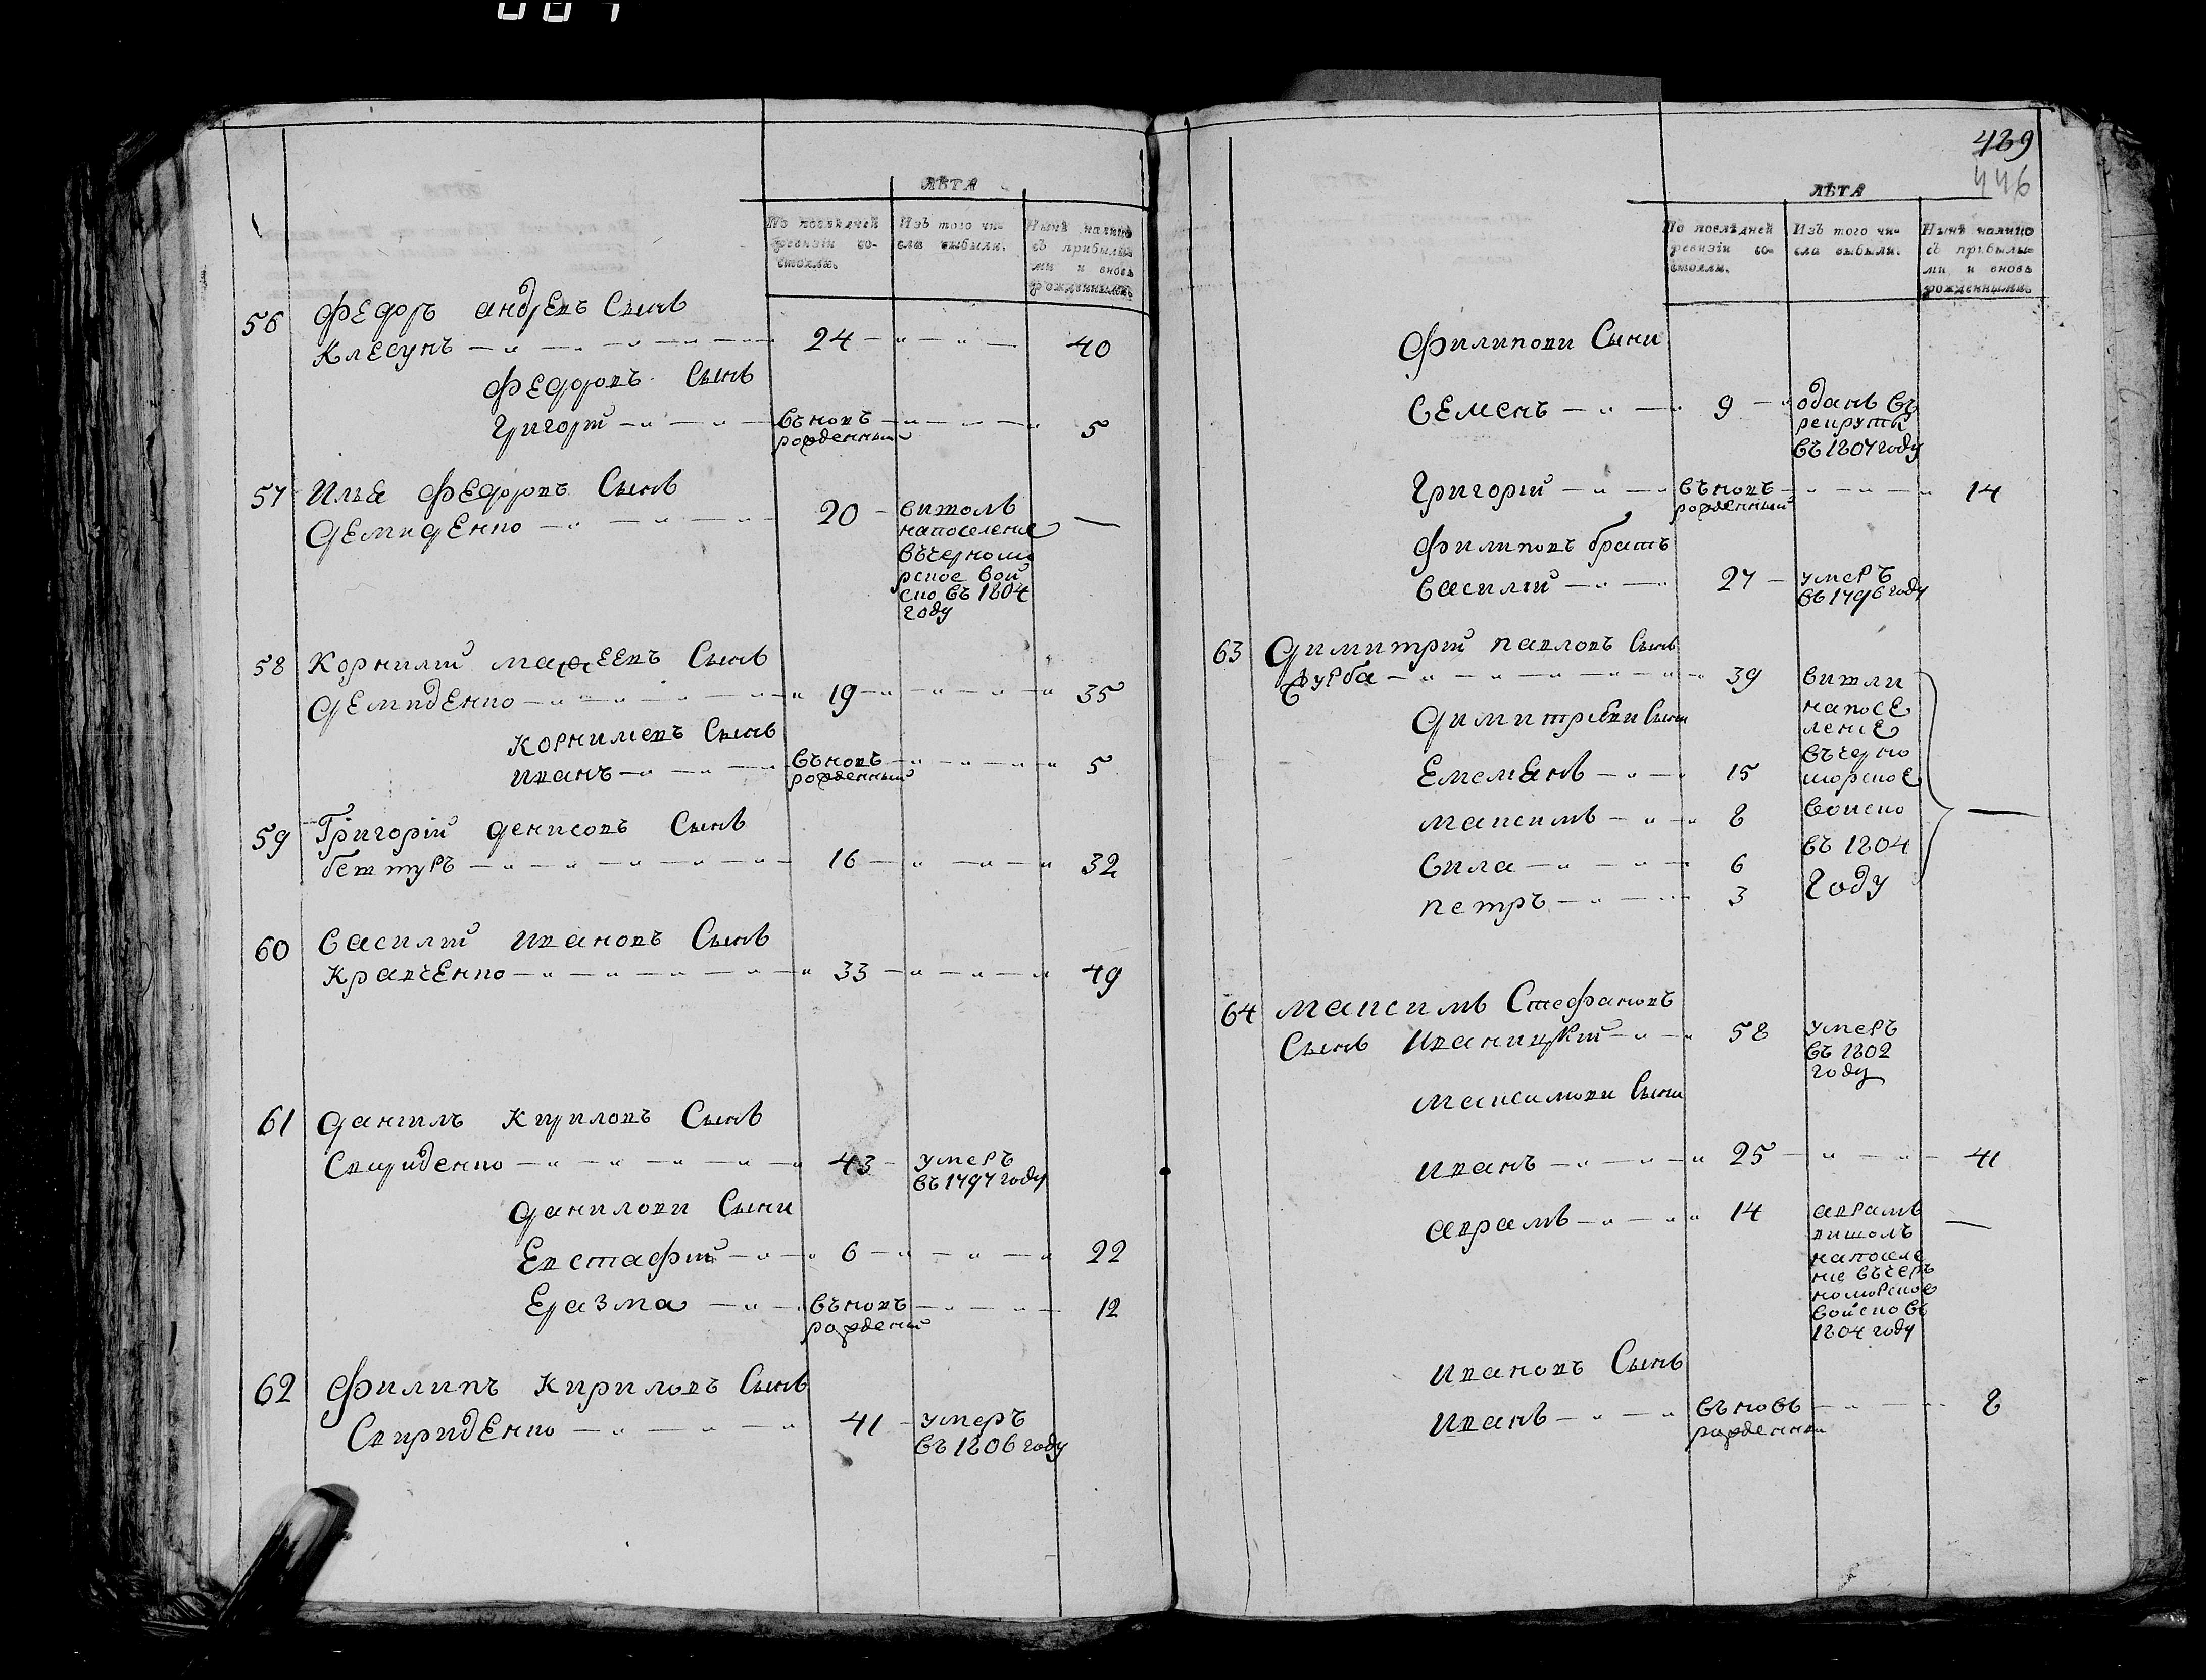 ЛѢТА
По послѣдней ревизіи состояли.
Изъ того числа выбыли.
Нынѣ налицо съ прибылыми и вновь рожденными.
56 Федоръ андреевъ Сынъ
Клесунъ 24 40
Федоровъ Сынъ
Григорій въновъ рожденный 5
57 Илья Федоровъ Сынъ
Демиденко 20 вишолъ
напоселение
въчерномо
рское вой
ско въ 1804
году
58 Корнилій мафеевъ Сынъ
Демиденко 19 35
Корнилиевъ Сынъ
иванъ въновъ рожденный 5
59 Григорій денисовъ Сынъ
16 32
60 Василій Ивановъ Сынъ
Кравченко 33 49
61 Данилъ Кириловъ Сынъ
Свириденко 43 умеръ
въ 1797 году
Данилови Сыни
Евстафій 6 22
Еразма въновъ рождений 12
62 Филипъ Кириловъ Сынъ
Свириденко 41 умеръ
въ 1806 году
439
446
ЛѢТА
По послѣдней ревизіи состояли.
Изъ того числа выбыли.
Нынѣ налицо съ прибылыми и вновь рожденными.
Филипови Сыни
Семенъ 9 оданъ въ
рекруты
въ 1807 году
Григорій въновъ рожденный 14
Филиповъ братъ
Василій 27 умеръ
въ 1796 году
63 Димитрій павловъ Сынъ
39 вишли
напосе
ление
въчерно
морское
войско
въ 1804
году
Димитриеви Сыни
Емелянъ 15
максимъ 8
Сила 6
петръ 3
64 максимъ Стефановъ
Сынъ Иваницкій 58 умеръ
въ 1802
году
максимови Сыни
иванъ 25 41
аврамъ 14 аврамъ
вишолъ
напоселе
ние въчеръ
номорское
войско въ
1804 году
ивановъ Сынъ
иванъ въновъ рожденни 8